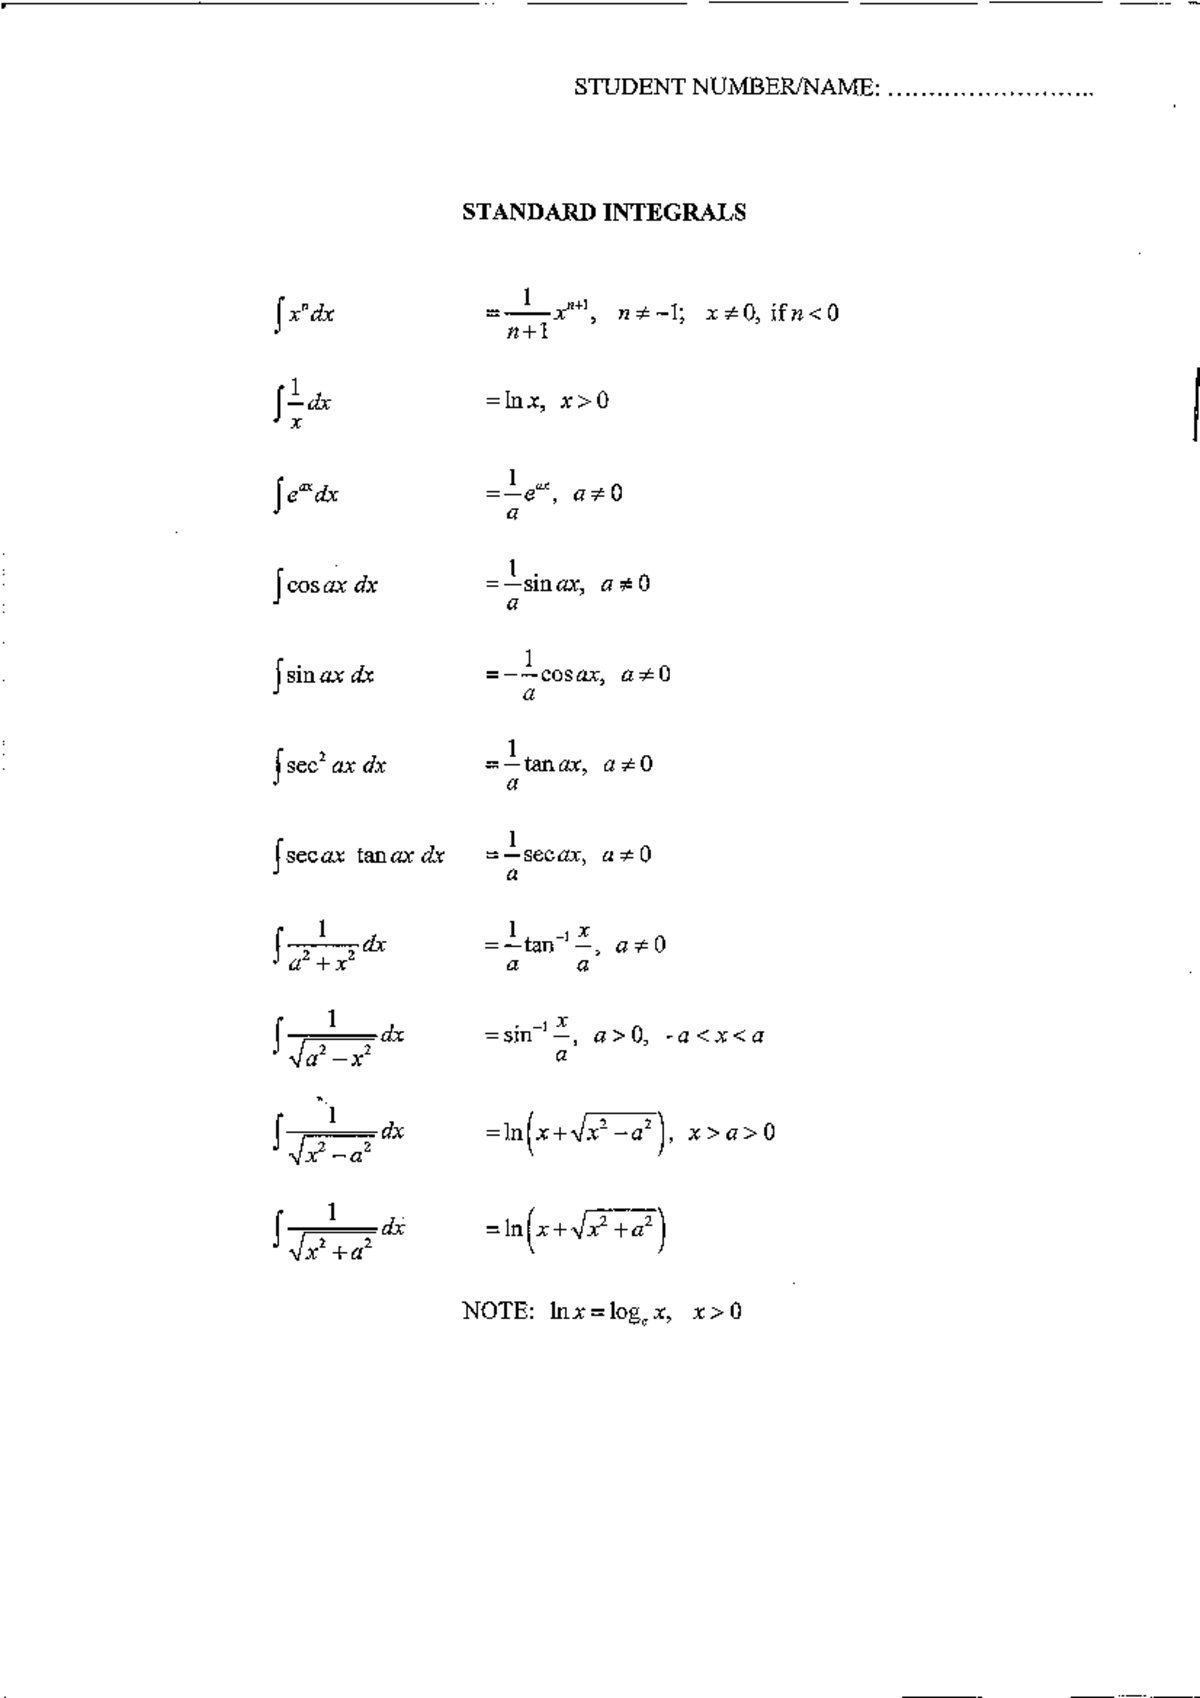 STUDENT NUMBER/NAME: ...........................
STANDARD INTEGRALS
∫ xⁿ dx = 1/(n+1) xⁿ⁺¹, n ≠ −1; x ≠ 0, if n < 0
∫ 1/x dx = ln x, x > 0
∫ e^{ax} dx = 1/a e^{ax}, a ≠ 0
∫ cos ax dx = 1/a sin ax, a ≠ 0
∫ sin ax dx = −1/a cos ax, a ≠ 0
∫ sec² ax dx = 1/a tan ax, a ≠ 0
∫ sec ax tan ax dx = 1/a sec ax, a ≠ 0
∫ 1/(a² + x²) dx = 1/a tan⁻¹ x/a, a ≠ 0
∫ 1/√(a² − x²) dx = sin⁻¹ x/a, a > 0, -a < x < a
∫ 1/√(x² − a²) dx = ln(x + √(x² − a²)), x > a > 0
∫ 1/√(x² + a²) dx = ln(x + √(x² + a²))
NOTE: ln x = logₑ x, x > 0